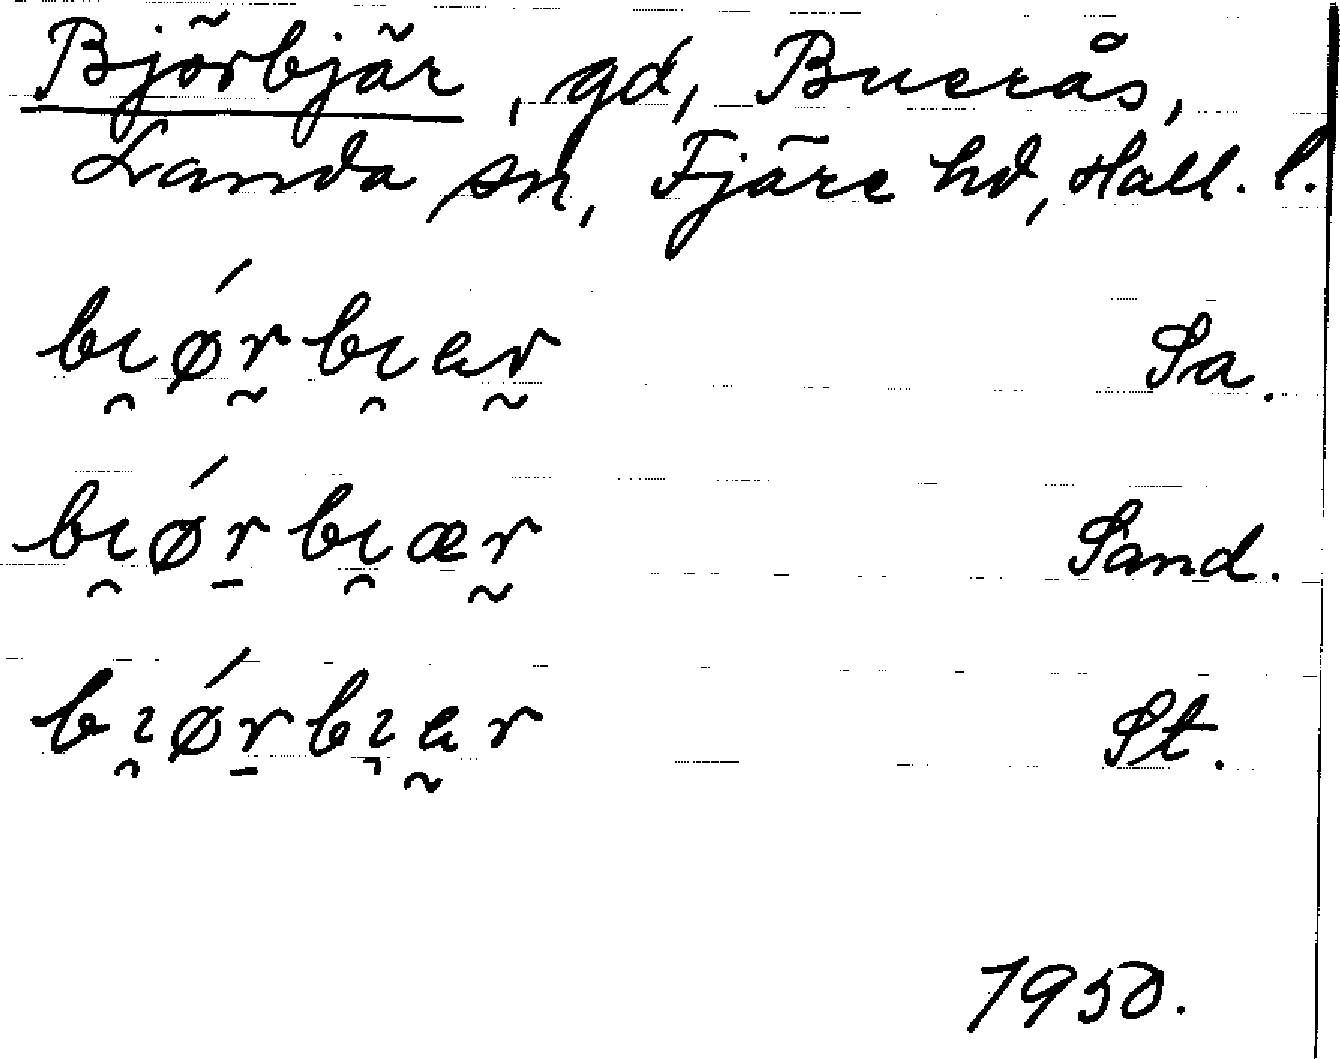 Björbjär, gd, Buerås,
Landa sn, Fjäre hd, Hall. l.
bı̯ǿr̰bı̯ar̰ Sa.
bı̯ǿṟbı̯ær̰ Sand.
bı̯ǿṟbı̯a̰r St.
1950.